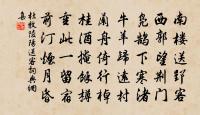 南樓送郢客
西郭望荊門
鳧鵠下寒渚
牛羊歸遠村
蘭舟倚行棹
桂酒掩餘樽
重此一留宿
前汀煙月昏
杜牧陵陽送客詞典網
集